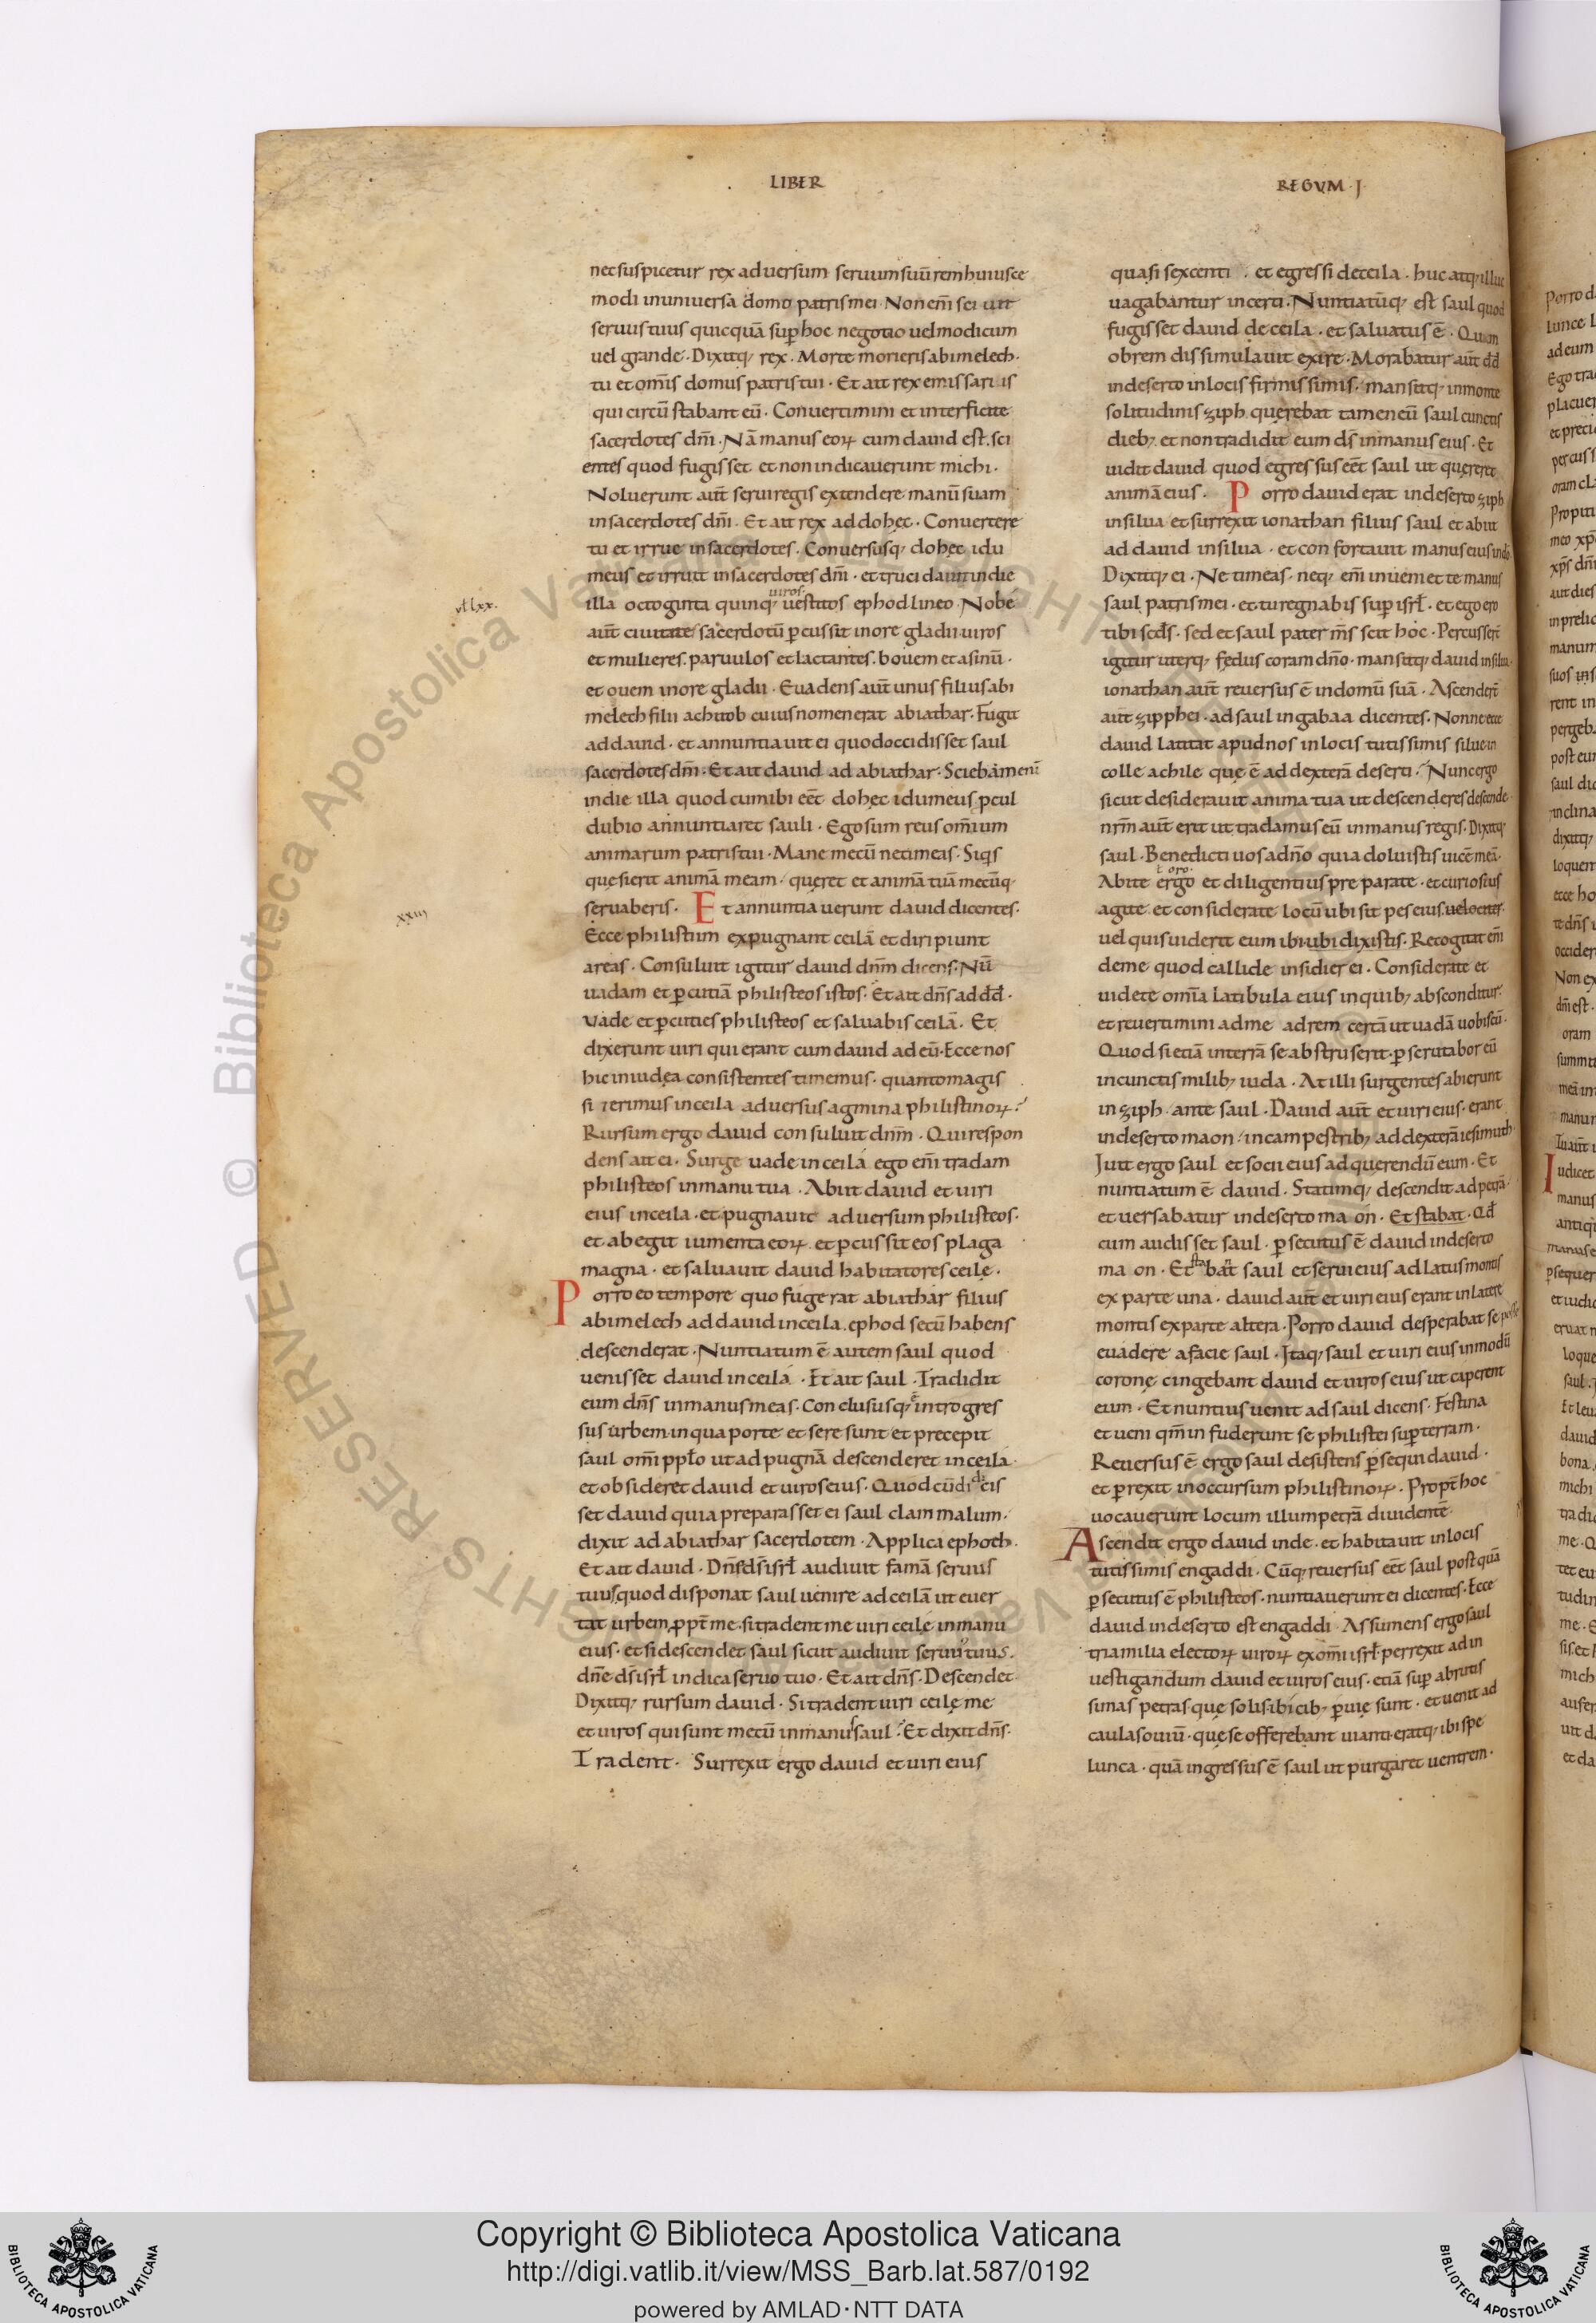 LIBER
REGVM · I
nec suspicetur rex aduersum seruum suū rem huiusce
modi in uniuersa domo patris mei · Non em̄ sci uit
seruus tuus quicquā sup̄ hoc negotio uel modicum
uel grande · Dixitq; rex · Morte morieris abimelech ·
tu et om̄is domus patris tui · Et ait rex emissariis
qui circū stabant eū · Conuertimini et interficite
sacerdotes dm̄i · Nā manus eoꝝ cum dauid est · sci
entes quod fugisset et non indicauerunt michi ·
Noluerunt aūt serui regis extendere manū suam
in sacerdotes dn̄i · Et ait rex ad dohęc · Conuertere
tu et irrue in sacerdotes · Conuersusq; dohęc idu
meus et irruit in sacerdotes dn̄i · et trucidauit in die
uiros ·
ul lxx ·
illa octoginta quinq; uestitos ephod lineo · Nobe
aūt ciuitatē sacerdotū ꝑcussit in ore gladii · uiros
et mulieres · paruulos et lactantes · bouem et asinū ·
et ouem in ore gladii · Euadens aūt unus filius abi
melech filii achitob cuius nomen erat abiathar · Fugit
ad dauid · et annuntiauit ei quod occidisset saul
sacerdotes dn̄i · Et ait dauid ad abiathar · Sciebam enī
in die illa quod cum ibi eēt dohęc idumeus pcul
dubio annuntiaret sauli · Ego sum reus om̄ium
animarum patris tui · Mane mecū ne timeas · Siqis
quesierit animā meam · queret et animā tuā mecūq;
xxiii
seruaberis · Et annuntiauerunt dauid dicentes ·
Ecce philistiim expugnant ceilā et diripiunt
areas · Consuluit igitur dauid dn̄m dicens · Nū
uadam et ꝑcutiā philisteos istos · Et ait dn̄s ad dd̄ ·
Vade et ꝑcuties philisteos et saluabis ceilā · Et
dixerunt uiri qui erant cum dauid ad eū · Ecce nos
hic in iudęa consistentes timemus · quanto magis
si ierimus in ceila aduersus agmina philistinoꝝ ?
Rursum ergo dauid consuluit dn̄m · Qui respon
dens ait ei · Surge uade in ceilā ego em̄ tradam
philisteos in manu tua · Abiit dauid et uiri
eius in ceila · et pugnauit aduersum philisteos ·
et abegit iumenta eoꝝ et ꝑcussit eos plaga
magna · et saluauit dauid habitatores ceilę ·
Porro eo tempore quo fugerat abiathar filius
abimelech ad dauid in ceila ephod secū habens
descenderat · Nuntiatum ē autem saul quod
uenisset dauid in ceila · Et ait saul · Tradidit
eum dn̄s in manus meas · Conclususq; ē introgres
sus urbem in qua porte et sere sunt et precepit
saul om̄i ppl̄o ut ad pugnā descenderet in ceila
et obsideret dauid et uiros eius · Quod cū didicis
set dauid quia preparasset ei saul clam malum ·
dixit ad abiathar sacerdotem · Applica ephoth ·
Et ait dauid · Dn̄s ds̄ isrl̄ audiuit famā seruus
tuus quod disponat saul uenire ad ceilā ut euer
tat urbem ꝓpt̄ me · si tradent me uiri ceilę in manu
eius · et si descendet saul sicut audiuit seruus tuus ·
dn̄e ds̄ isrl̄ indica seruo tuo · Et ait dn̄s · Descendet ·
Dixitq; rursum dauid · Si tradent uiri ceilę me
et uiros qui sunt mecū in manus saul ? Et dixit dn̄s ·
Tradent · Surrexit ergo dauid et uiri eius
quasi sexcenti · et egressi de ceila · huc atq; illuc
uagabantur incerti · Nuntiatūq; est saul quod
fugisset dauid de ceila · et saluatus ē · Quam
obrem dissimulauit exire · Morabatur aūt dd̄
in deserto in locis firmissimis · mansitq; in monte
solitudinis ziph querebat tamen eū saul cunctis
dieb; et non tradidit eum ds̄ in manus eius · Et
uidit dauid quod egressus eēt saul ut quereret
animā eius · Porro dauid erat in deserto ziph
in silua et surrexit ionathan filius saul et abiit
ad dauid in silua · et confortauit manus eius in dō
Dixitq; ei · Ne timeas · neq; em̄ inueniet te manus
saul patris mei · et tu regnabis sup̄ isrl̄ · et ego ero
tibi scds̄ · sed et saul pater m̄s scit hoc · Percusser̄t
igitur uterq; fędus coram dn̄o · mansitq; dauid in silua ·
ionathan aūt reuersus ē in domū suā · Ascender̄t
aūt zipphei · ad saul in gabaa dicentes · Nonne ecce
dauid latitat apud nos in locis tutissimis silue in
colle achile quę ē ad dexterā deserti · Nunc ergo
sicut desiderauit anima tua ut descenderes descende
nr̄m aūt erit ut tradamus eū in manus regis · Dixitq;
saul · Benedicti uos a dn̄o quia doluistis uicē meā ·
ł oro ·
Abite ergo et diligentius preparate · et curiosius
agite et considerate locū ubi sit pes eius uelociter
uel quis uiderit eum ibi ubi dixistis · Recogitat em̄
de me quod callide insidier ei · Considerate et
uidete om̄ia latibula eius in quib; absconditur ·
et reuertimini ad me ad rem certā ut uadā uobiscū ·
Quod si etiā in terrā se abstruserit · ꝑscrutabor eū
in cunctis milib; iuda · At illi surgentes abierunt
in ziph ante saul · Dauid aūt et uiri eius · erant
in deserto maon · in campestrib; ad dexterā iesimuth ·
Iuit ergo saul et socii eius ad querendū eum · Et
nuntiatum ē dauid · Statimq; descendit ad petrā ·
et uersabatur in deserto maon · Et stabat · Qd̄
cum audisset saul · ꝑsecutus ē dauid in deserto
maon · Et stabat saul et serui eius ad latus montis
ex parte una · dauid aūt et uiri eius erant in latere
montis ex parte altera · Porro dauid desperabat se posse
euadere a facie saul · Itaq; saul et uiri eius in modū
coronę cingebant dauid et uiros eius ut caperent
eum · Et nuntius uenit ad saul dicens · Festina
et ueni qm̄ infuderunt se philistei sup̄ terram ·
Reuersus ē ergo saul desistens ꝑsequi dauid ·
et perrexit in occursum philistinoꝝ · Propt̄ hoc
uocauerunt locum illum petrā diuidentē
Ascendit ergo dauid inde · et habitauit in locis
tutissimis engaddi · Cūq; reuersus eēt saul postquā
ꝑsecutus ē philisteos · nuntiauerunt ei dicentes · Ecce
dauid in deserto est engaddi · Assumens ergo saul
tria milia electoꝝ uiroꝝ ex om̄i isrl̄ perrexit ad in
uestigandum dauid et uiros eius · etiā sup̄ abrutis
simas petras quę solis · ibicib; ꝑuię sunt · et uenit ad
caulas ouiū · que se offerebant uianti · eratq; ibi spe
lunca · quā ingressus ē saul ut purgaret uentrem ·
Copyright © Biblioteca Apostolica Vaticana
http://digi.vatlib.it/view/MSS_Barb.lat.587/0192
powered by AMLAD · NTT DATA
BIBLIOTECA APOSTOLICA VATICANA
BIBLIOTECA APOSTOLICA VATICANA